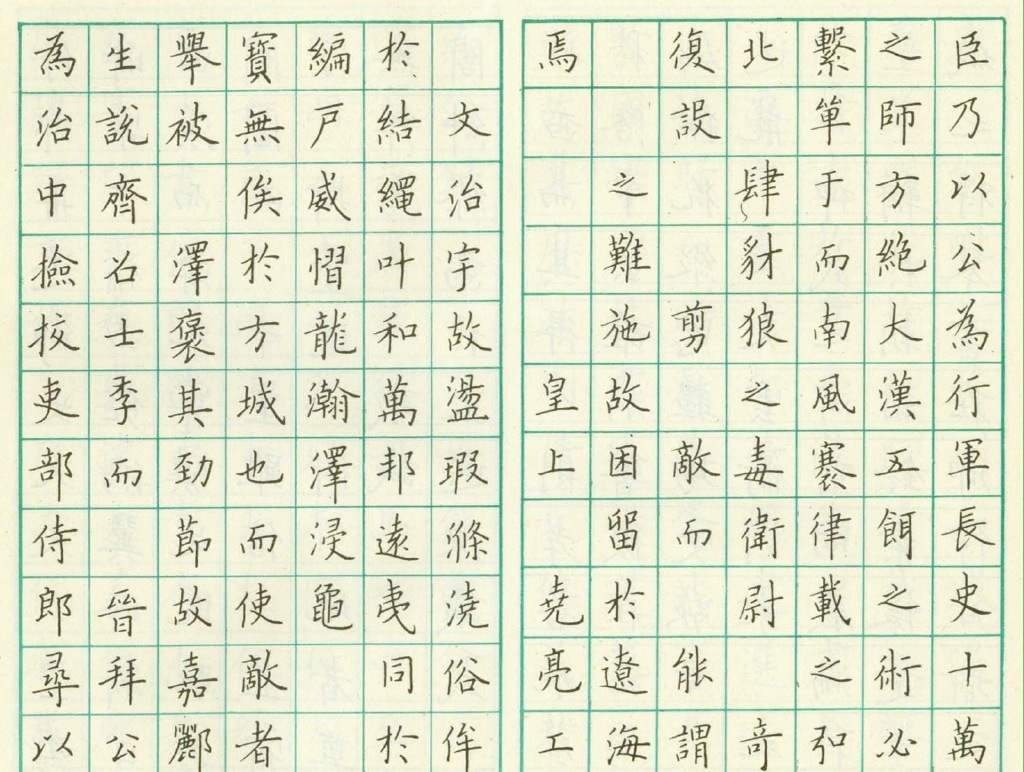 臣乃以公為行軍長史十萬
之師方絕大漢五餌之術必
繫單于而南風褰律載之弘
北肆豺狼之毒衛尉奇
復設剪敵而能謂
之難施故困留於遼海
焉皇上堯亮工
文治宇故盪瑕滌澆俗侔
於結繩叶和萬邦遠夷同於
編戶威慴龍瀚澤浸龜
寶無俟於方城也而使敵者
舉被澤褒其勁節故嘉酈
生說齊召士季而晉拜公
為治中撿挍吏部侍郎尋以